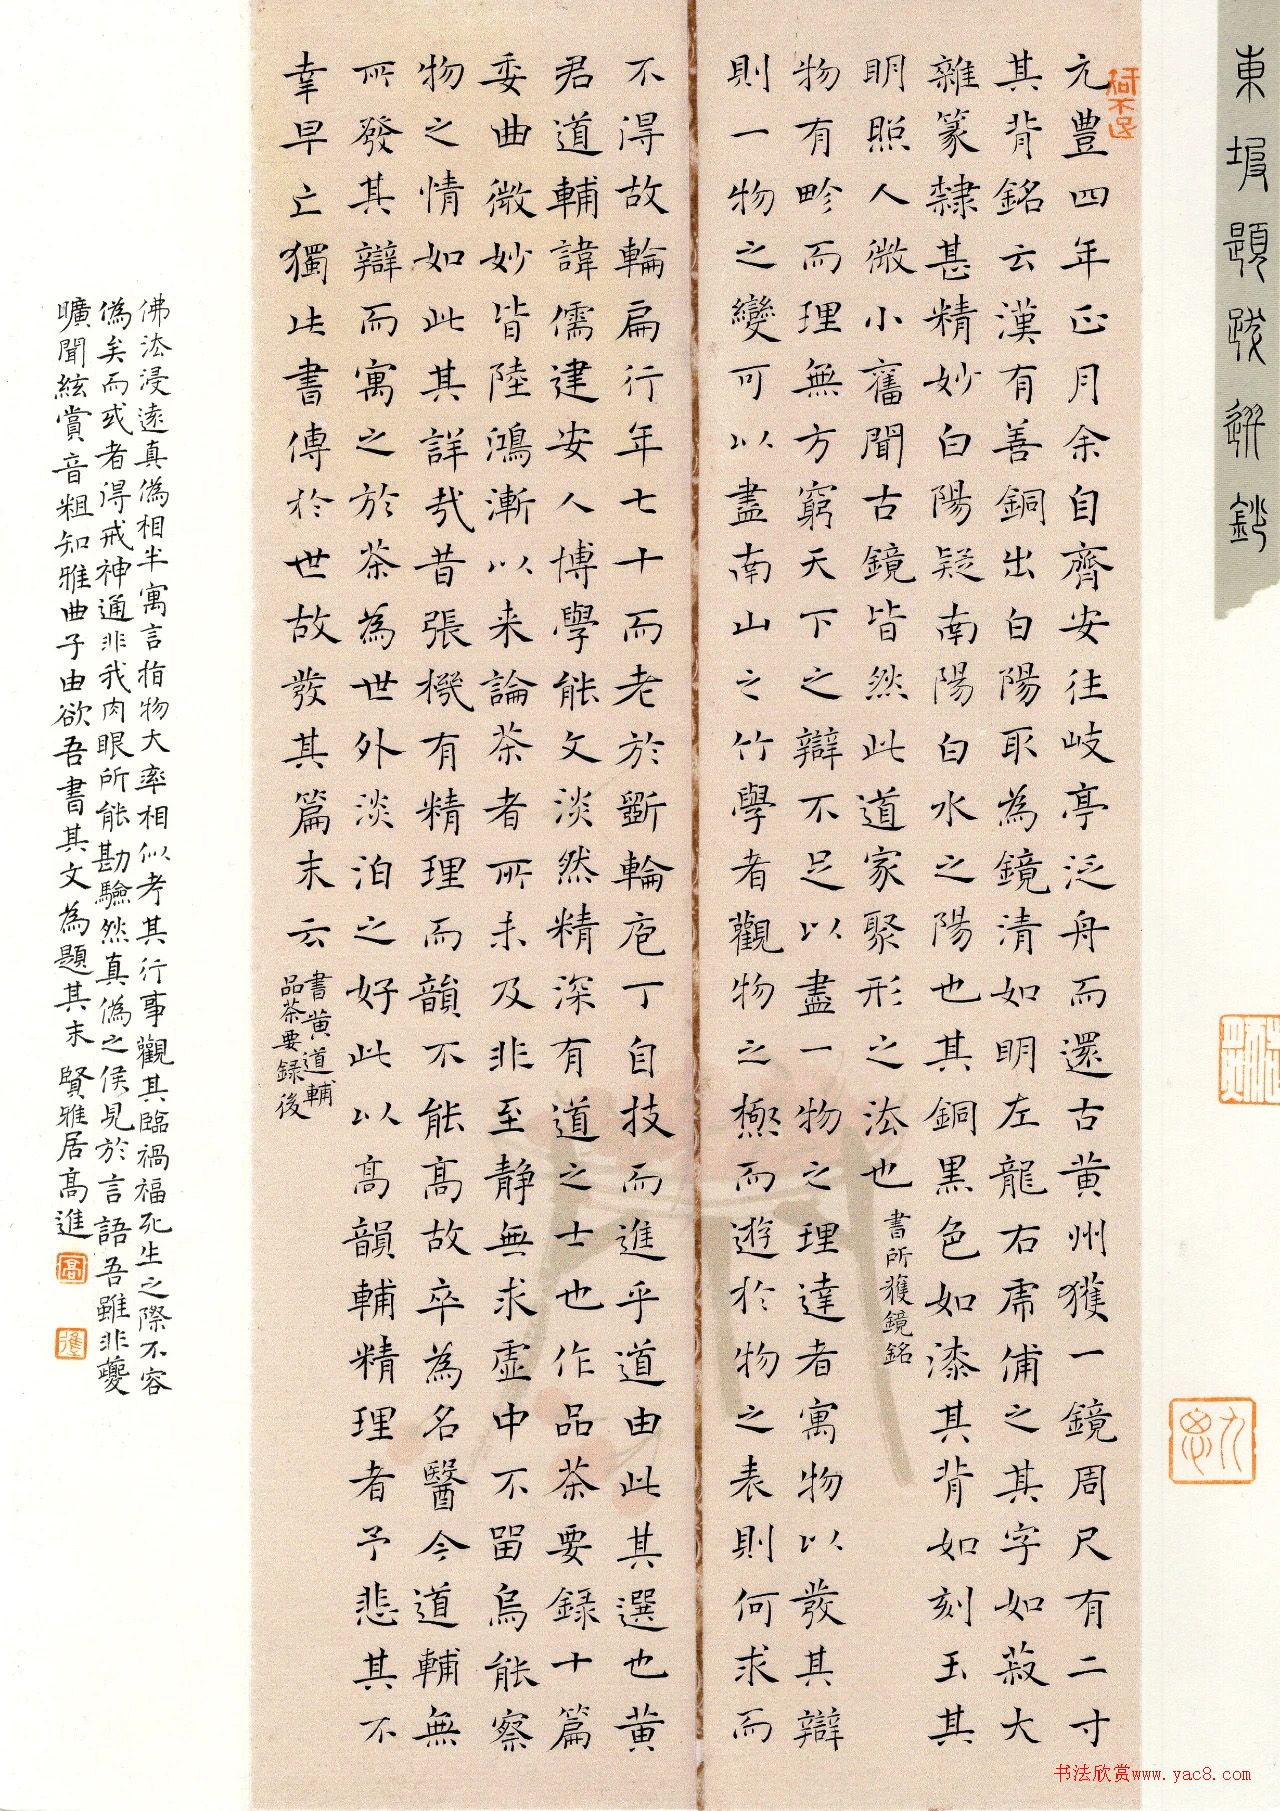 東坡題跋選鈔
元豊四年正月余自齊安往岐亭泛舟而還古黄州獲一鏡周尺有二寸
其背銘云漢有善銅出白陽取為鏡清如明左龍右虎俌之其字如菽大
雜篆隸甚精妙白陽疑南陽白水之陽也其銅黑色如漆其背如刻玉其
明照人微小舊聞古鏡皆然此道家聚形之法也 書所獲鏡銘
物有畛而理無方窮天下之辯不足以盡一物之理達者寓物以發其辯
則一物之變可以盡南山之竹學者觀物之極而遊於物之表則何求而
不得故輪扁行年七十而老於斵輪庖丁自技而進乎道由此其選也黄
君道輔諱儒建安人博學能文淡然精深有道之士也作品茶要録十篇
委曲微妙皆陸鴻漸以来論茶者所未及非至静無求虚中不留烏能察
物之情如此其詳哉昔張機有精理而韻不能高故卒為名醫今道輔無
所發其辯而寓之於茶為世外淡泊之好此以高韻輔精理者予悲其不
幸早亡獨此書傳於世故發其篇末云 書黄道輔
品茶要録後
佛法浸遠真偽相半寓言指物大率相似考其行事觀其臨禍福死生之際不容
偽矣而或者得戒神通非我肉眼所能勘驗然真偽之侯見於言語吾雖非夔
曠聞絃賞音粗知雅曲子由欲吾書其文為題其末 賢雅居高進
书法欣赏www.yac8.com